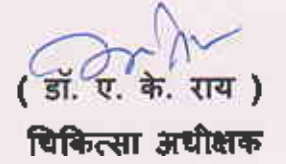 ( डॉ. ए. के. राय )
चिकित्सा अधीक्षक